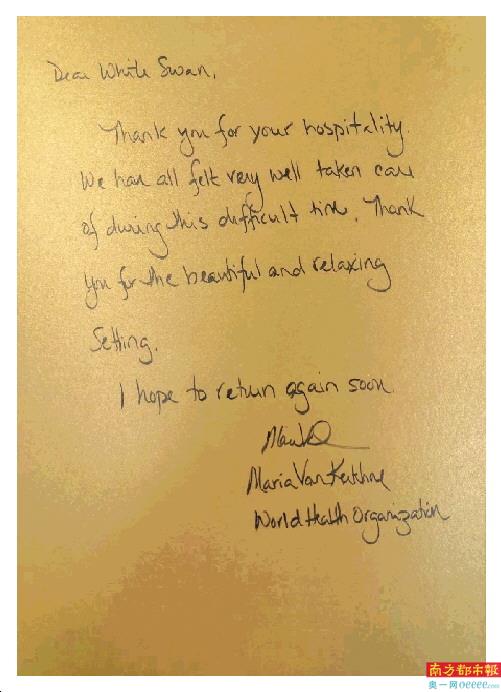 Dear White Swan,
Thank you for your hospitality.
We have all felt very well taken care
of during this difficult time. Thank
you for the beautiful and relaxing
Setting.
I hope to return again soon.
Maria Van Kerkhove
World Health Organization
南方都市報
奥一网oeeee.com